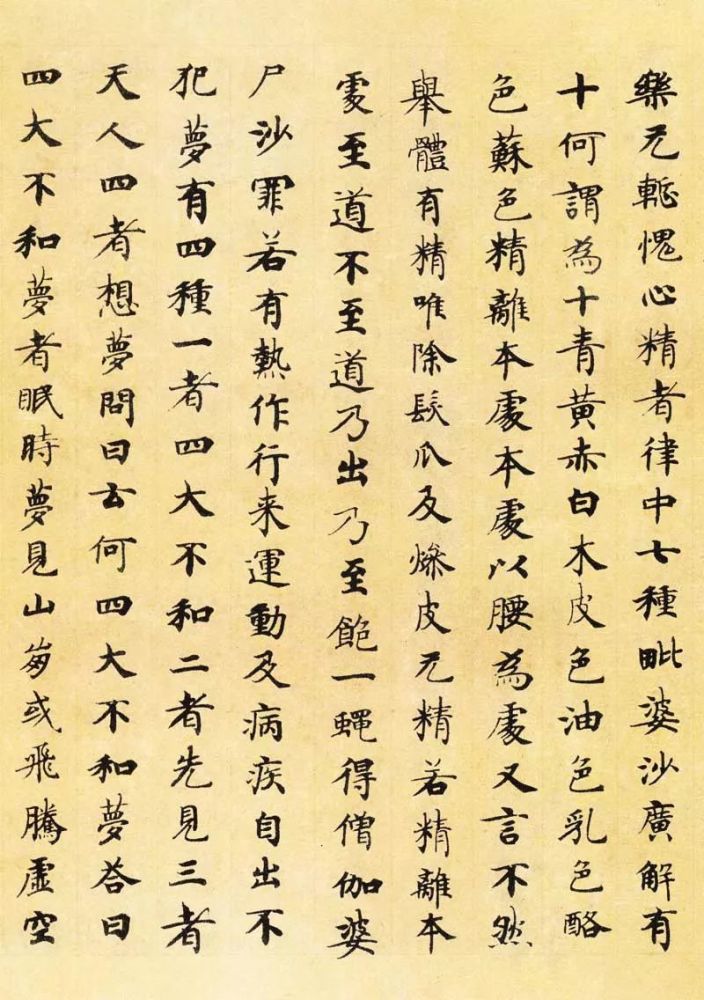 樂无慙愧心精者律中七種毗婆沙廣解有
十何謂為十青黃赤白木皮色油色乳色酪
色蘇色精離本處本處以腰為處又言不然
舉體有精唯除髮爪及燥皮无精若精離本
處至道不至道乃出乃至飽一蠅得僧伽婆
尸沙罪若有熱作行来運動及病疾自出不
犯夢有四種一者四大不和二者先見三者
天人四者想夢問曰云何四大不和夢答曰
四大不和夢者眠時夢見山崩或飛騰虛空